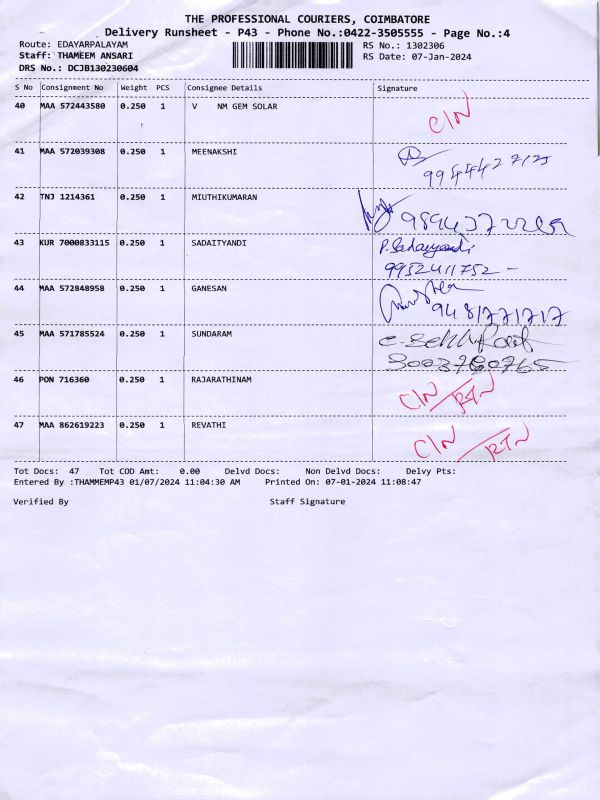 THE PROFESSIONAL COURIERS, COIMBATORE
Delivery Runsheet - P43 - Phone No.:0422-3505555 - Page No.:4
Route: EDAYARPALAYAM RS No.: 1302306
Staff: THAMEEM ANSARI RS Date: 07-Jan-2024
DRS No.: DCJB130230604
S No Consignment No Weight PCS Consignee Details Signature
40 MAA 572443580 0.250 1 V NM GEM SOLAR C/N
41 MAA 572039308 0.250 1 MEENAKSHI
42 TNJ 1214361 0.250 1 MIUTHIKUMARAN
43 KUR 7000833115 0.250 1 SADAITYANDI P. Sadaiyandi
9952411752 -
44 MAA 572848958 0.250 1 GANESAN
9481771717
45 MAA 571785524 0.250 1 SUNDARAM
46 PON 716360 0.250 1 RAJARATHINAM C/N / RTN
47 MAA 862619223 0.250 1 REVATHI C/N / RTN
Tot Docs: 47 Tot COD Amt: 0.00 Delvd Docs: Non Delvd Docs: Delvy Pts:
Entered By :THAMMEMP43 01/07/2024 11:04:30 AM Printed On: 07-01-2024 11:08:47
Verified By Staff Signature